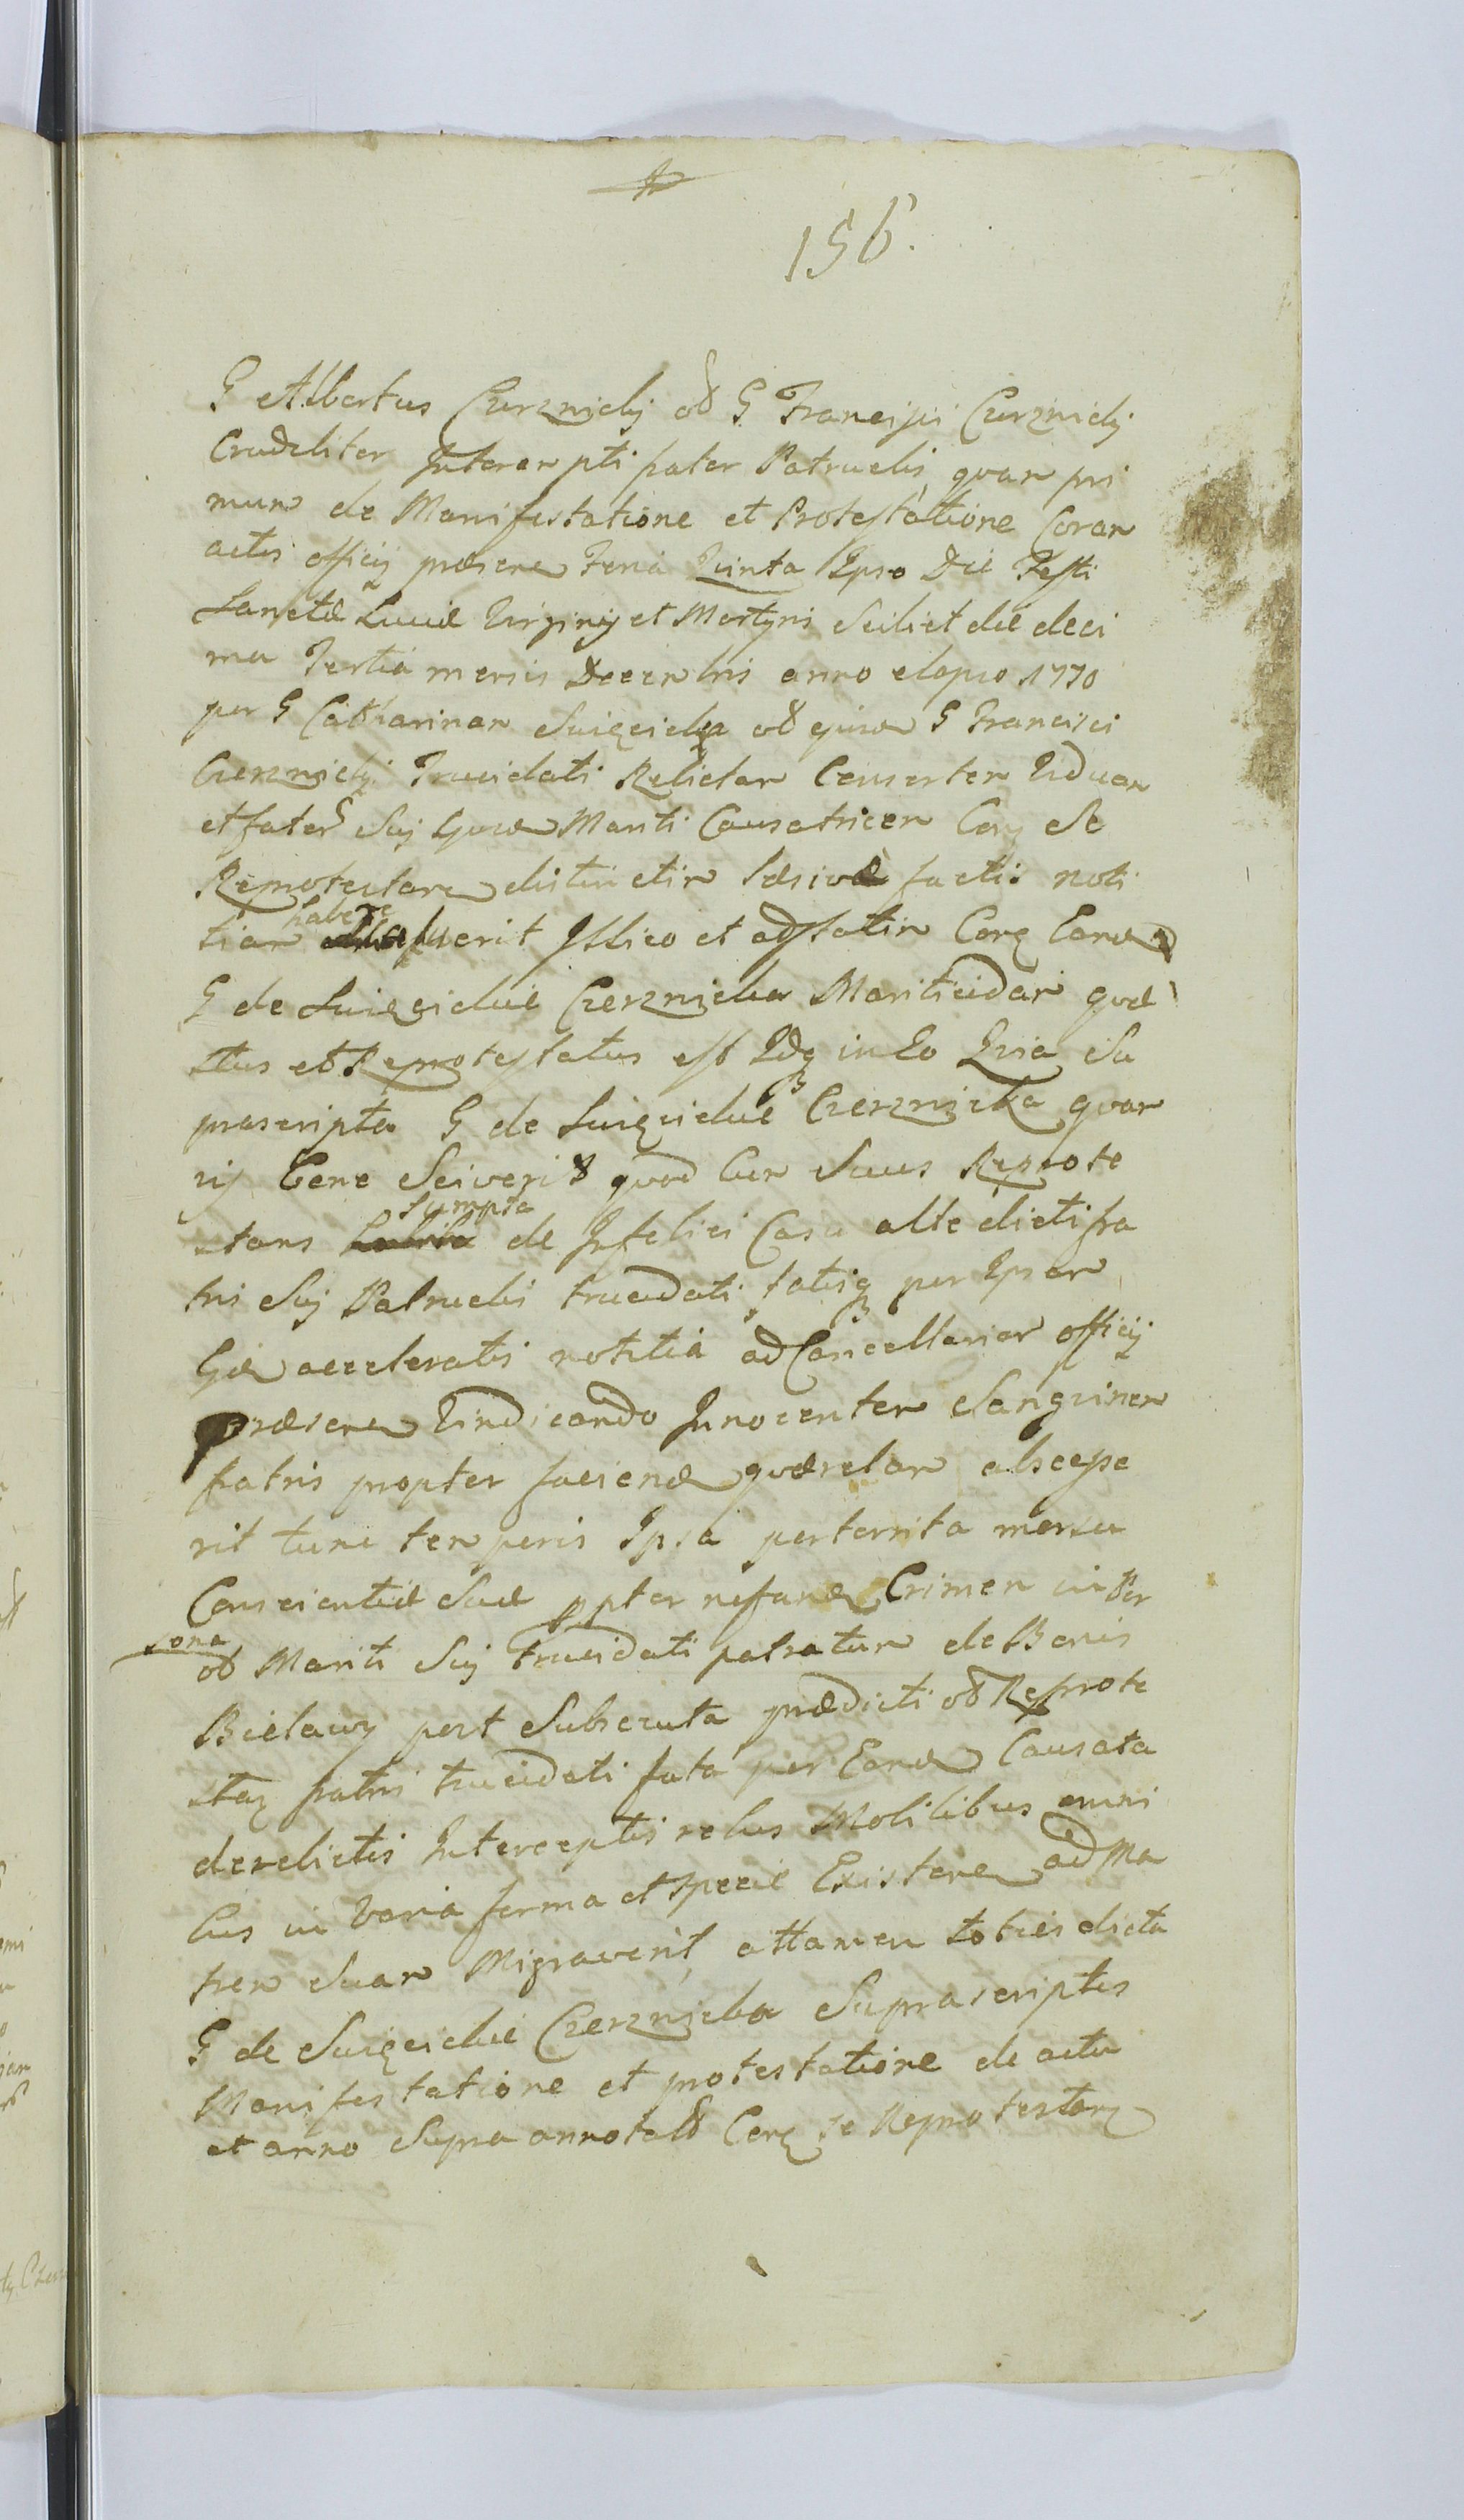 156.
G Albertus Czerznicki od G Francisci Czerznicki
Crudeliter Interempti frater Patruelis, quam pri
mum de Manifestatione et Protestatione Coram
actis officij præsen Feria Quinta Ipso Die Festi
Sanctæ Luciæ Virginis et Martyris Scilicet die deci
ma Tertia mensis Decembris anno elapso 1770
per G Catharinam Swięcicka od G Francisci
Czerznicki Trucidati Relictam Consortem Viduam
et Suj Mariti Causatricem Corq Se
Reprotestare distinctim læsivæ factis noti
tiam habere fuerit Illico et adstatim Corq Eand
G de Swięcickie Czerznicka Mariticidam quæ
stus et Reprotestatus est Idq in Eo Quia Su
prascripta G de Swięcickie Czerznicka quam
vis bene Sciverit quod Cum Suus Reprote
stans sumpta de Infelici Casu alte dicti fra
tris Suj Patruelis trucidati fatisq per Ipsam
acceleratis notitia ad Cancellariam officij
præsen Vindicando Innocentem Sanguinem
fratris propter faciend quærelam absces se
rit tunc temporis Ipsa perterrita morsu
Conscientiæ Suæ ppter nefand Crimen in Per
sona
od Mariti Suj trucidati patratum de Bonis
Bielawy post Subsecuta prædicti od Reprote
staq fratris trucidati fata per Eand Causata
derelictis Interceptis rebus Mobilibus omni
bus in varia forma et specie Existen ad Ma
trem Suam Migraverit, attamen toties dicta
G de Swięcickie Czerznicka Suprascriptis
Manifestatione et protestatione de actu
et anno Supra annotat Corq se Reprotestanq